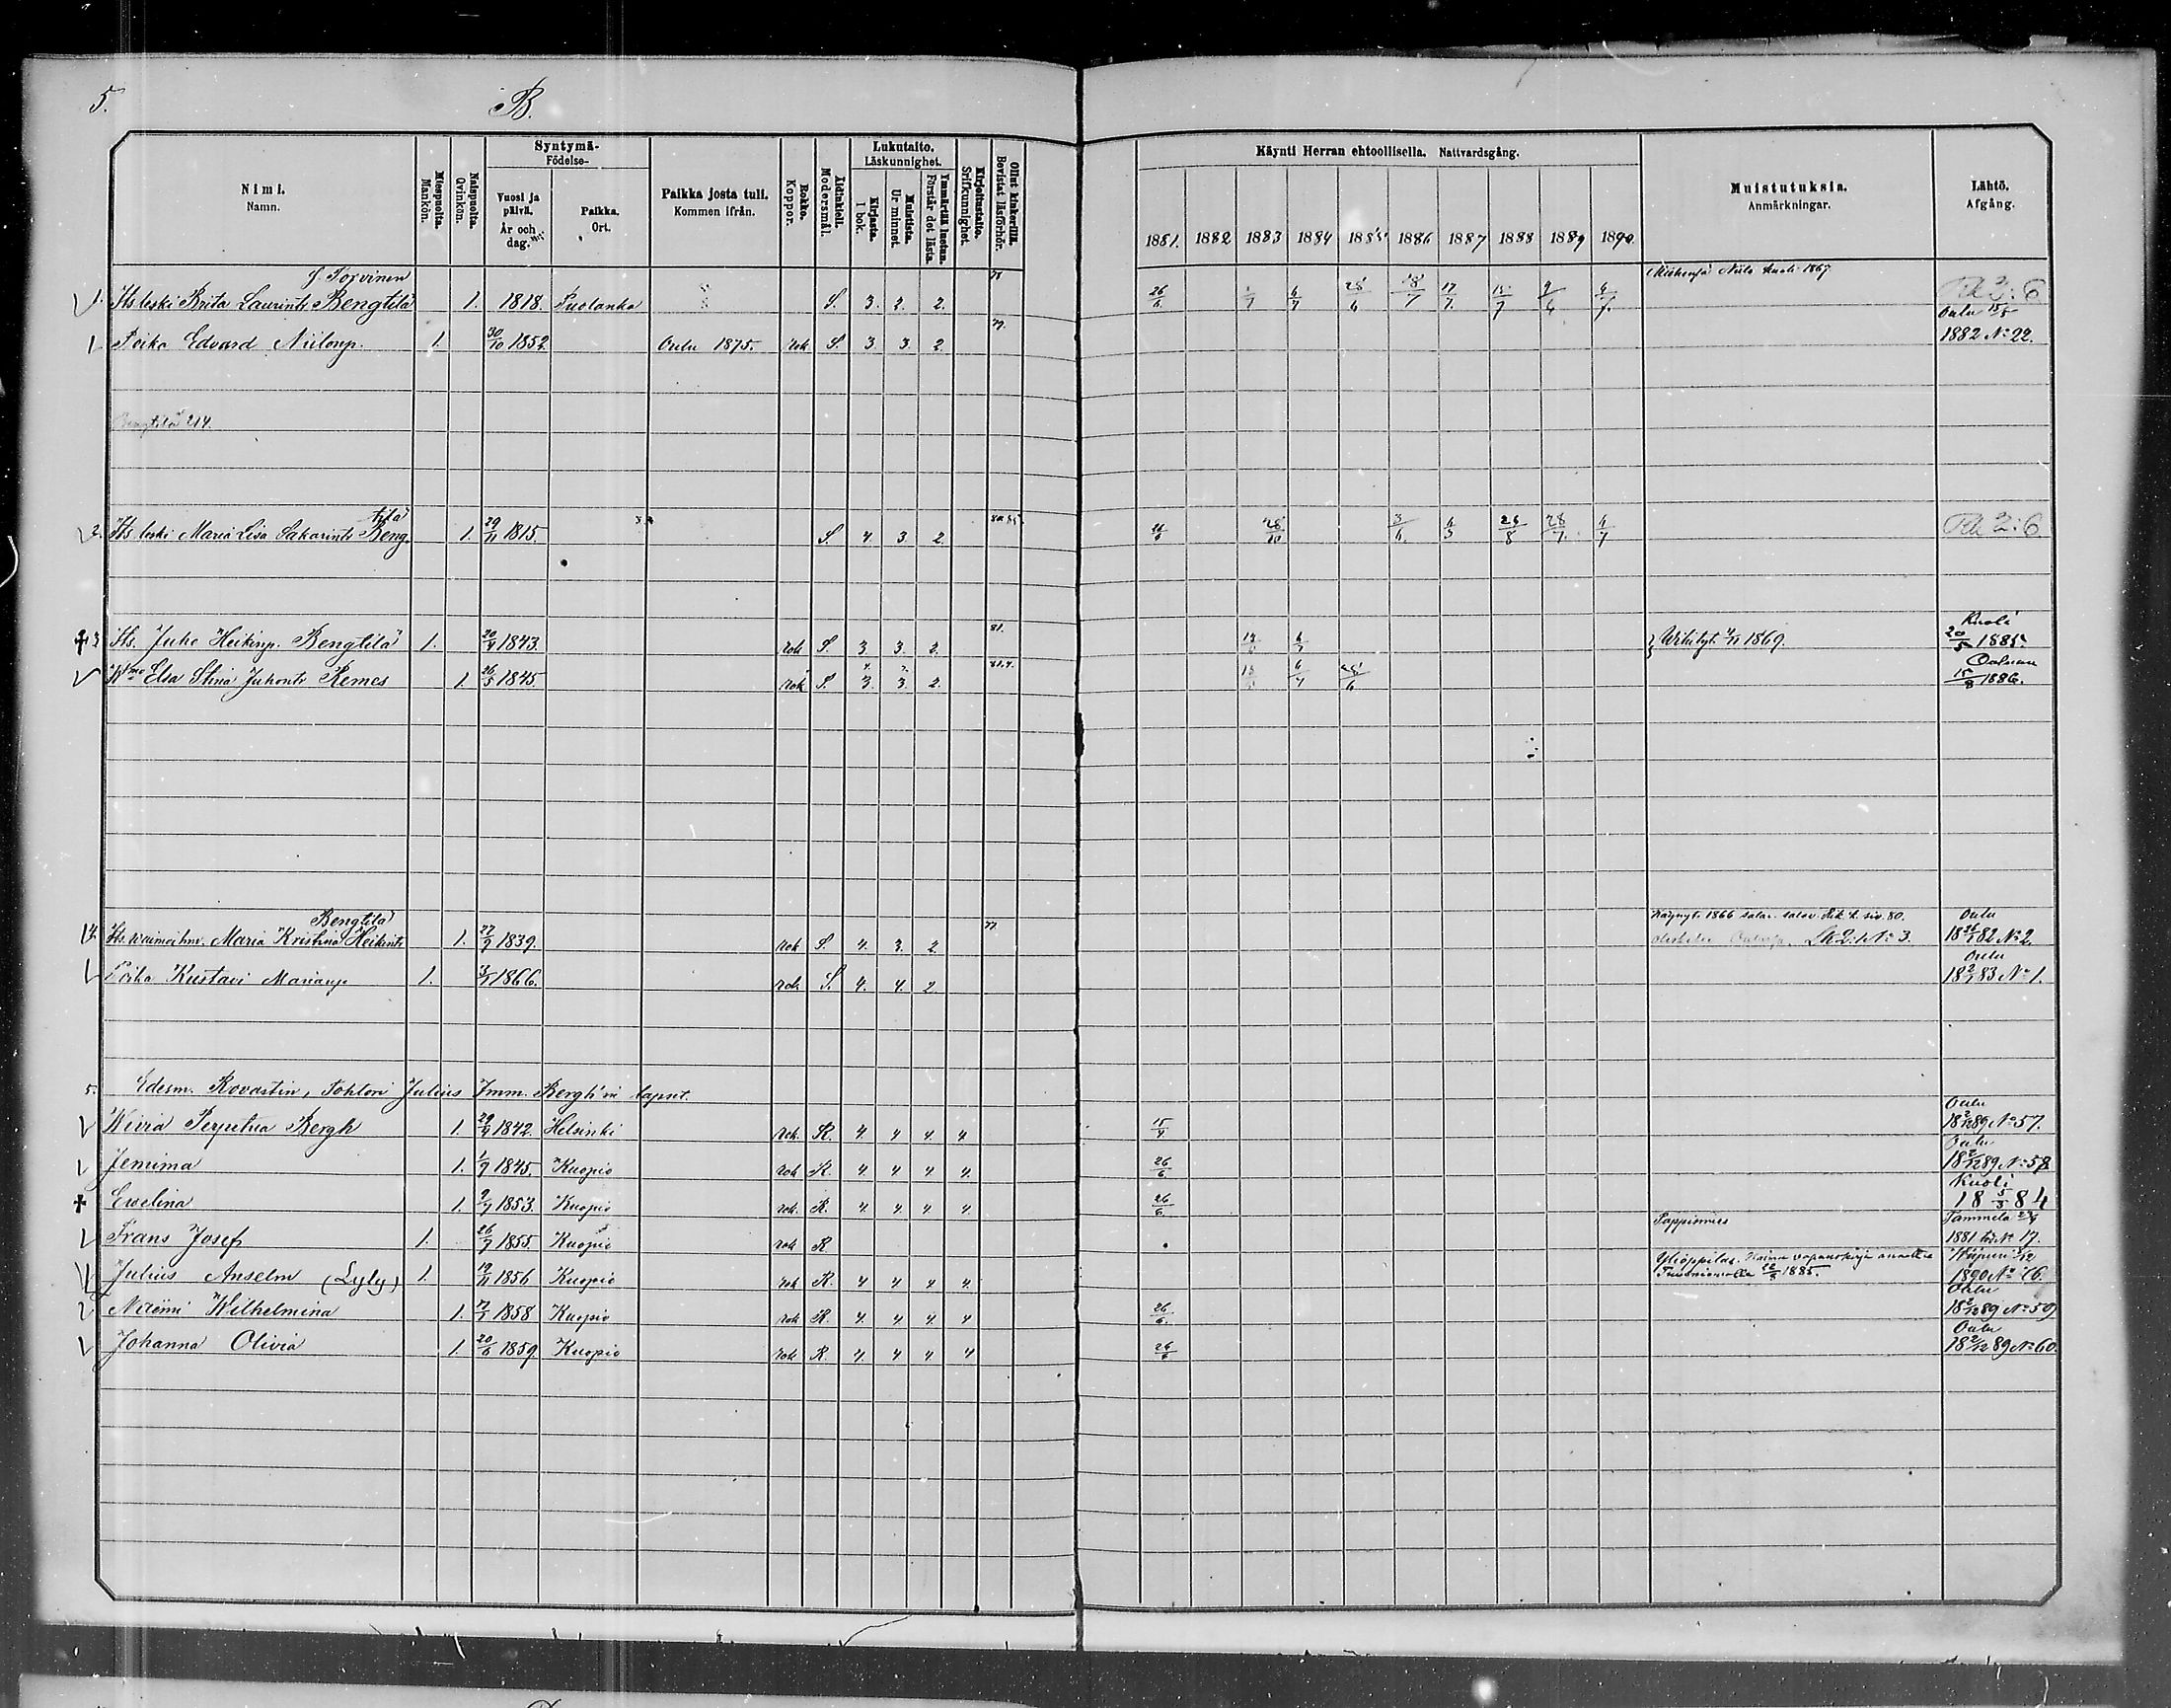 5.
B.
Nimi. Namn.
Miespuolta. Mankön.
Naispuolta. Qvinkön.
Syntymä- Födelse-
Vuosi ja päivä. År och dag.
Paikka. Ort.
Paikka josta tuli. Kommen ifrån.
Rokko. Koppor.
Äidinkieli. Modersmål.
Lukutaito. Läskunnighet.
Kirjasta. I bok.
Muistista. Ur minnet.
Ymmärtää luetun. Förstår det lästa.
Kirjoitustaito. Srifkunnighet.
Ollut kinkerillä. Bevistat läsförhör.
Käynti Herran ehtoollisella. Nattvardsgång.
1881. 1882 1883 1884 1885 1886 1887 1888 1889 1890.
Muistutuksia. Anmärkningar.
Lähtö. Afgång.
f. Torvinen
1. Its leski Brita Laurintr Bengtilä 1. 1818. Puolanka S. 3. 2. 2. 26/6 6/7 28/6 18/7 17/7 15/7 9/6 6/7 Miehensä Niilo kuoli 1867
Oulu 15/5
Poika Edvard Niilonp. 1. 30/10 1852 Oulu 1875. rok S. 3. 3. 2. 79. 1882 No 22.
Bengtilä 214.
tilä
2. Its leski Maria Lisa Sakarintr Beng. 1. 29/11 1815. S. 4. 3. 2. 28/10 3/6 6/3 26/8 28/7 6/7 2:6.
Kuoli
3 Its. Juho Heikinp. Bengtilä 1. 20/4 1843. rok S. 3. 3. 2. 81. 6/7 Wihityt 1869. 20/5 1885.
Ouluun
Wmo Elsa Stina Juhontr Remes 1. 26/5 1845. rok S. 3. 3. 2. 6/7 15/8 1886.
Bengtilä
4. Its. waimoihm. Maria Kristina Heikintr 1. 27/7 1839. rok S. 4. 3. 2 77 1866 siv. 80. Lk 2:1 No 3. Oulu 82 No 2.
Poika Kustavi Marianp 1. 1866. rok S. 4. 4. 2 Oulu 83 No 1.
5. Edesm. Rovastin, Tohtori Julius Imm. Bergh'in lapset.
Wivia Perpetua Bergh 1. 29/4 1842. Helsinki rok. R. 4. 4 4. 4 15/4 Oulu 18 2/12 89 No 57.
Jemima 1. 1/7 1845. Kuopio rok R. 4. 4 4 4. 26/6 Oulu 18 2/12 89 No 58
Ewelina 1. 2/7 1853. Kuopio rok. R. 4. 4 4 4. 26/6 Kuoli 18 5/3 84
Frans Josef 1. 26/7 1855. Kuopio rok R Pappismies Tammela 1881 No 17.
Julius Anselm (Lyly) 1. 19/11 1856 Kuopio rok R. 4 4 4 4. Ylioppilas. 1885. Wiipuri 1890 No 76.
Naëmi Wilhelmina 1. 1858 Kuopio rok R. 4. 4. 4. 4 26/6. Oulu 18 2/12 89 No 59
Johanna Olivia 1. 20/6 1859. Kuopio rok R. 4. 4 4 4 26/6 Oulu 18 2/12 89 No 60.